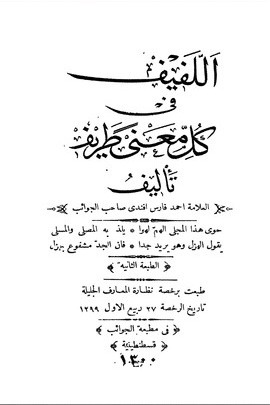 اللفيف
في
كل معنى طريف
تأليف
العلامة احمد فارس افندى صاحب الجوائب
حوى هذا المجلى الهم لهوا * يلذ به المصلى والمسلى
يقول الهزل وهو يريد جدا * فان الجد مشفوع بهزل
﴿ الطبعة الثانية ﴾
طبعت برخصة نظارة المعارف الجليلة
تاريخ الرخصة ٢٧ ربيع الاول ١٢٩٩
﴿ فى مطبعة الجوائب ﴾
قسطنطينية
١٣٠٠